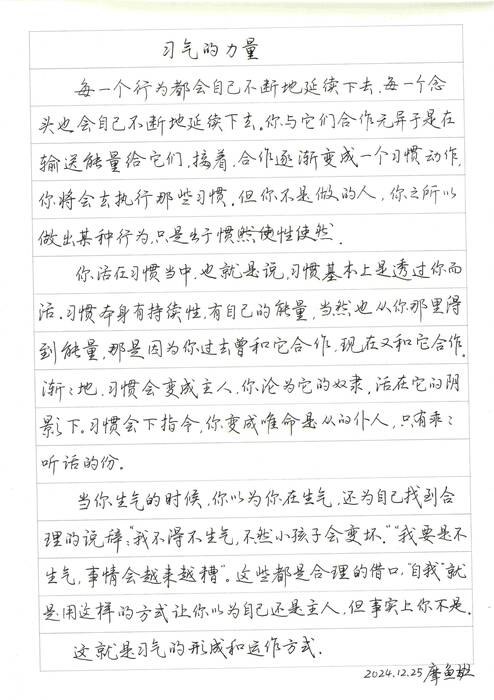 习气的力量
每一个行为都会自己不断地延续下去.每一个念
头也会自己不断地延续下去.你与它们合作无异于是在
输送能量给它们.接着.合作逐渐变成一个习惯动作.
你将会去执行那些习惯.但你不是做的人,你之所以
做出某种行为,只是出于惯性使然.
你活在习惯当中.也就是说,习惯基本上是透过你而
活.习惯本身有持续性,有自己的能量,当然也从你那里得
到能量,那是因为你过去曾和它合作,现在又和它合作.
渐渐地,习惯会变成主人,你沦为它的奴隶.活在它的阴
影下.习惯会下指令,你变成唯命是从的仆人,只有乖乖
听话的份.
当你生气的时候,你以为你在生气,还为自己找到合
理的说辞:"我不得不生气,不然小孩子会变坏.""我要是不
生气,事情会越来越糟".这些都是合理的借口,"自我"就
是用这样的方式让你以为自己还是主人,但事实上你不是.
这就是习气的形成和运作方式.
2024.12.25 摩鱼班